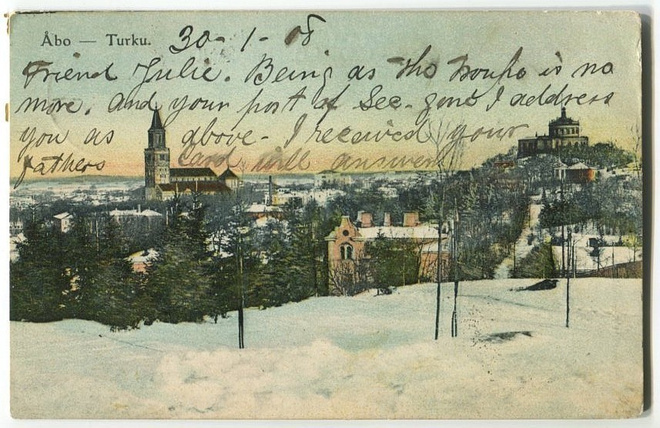 Åbo — Turku.
30-1-08
Friend Julie. Being as tho Troupo is no
more. and your post of Sec- gone I address
you as above- I received your
fathers card will answer